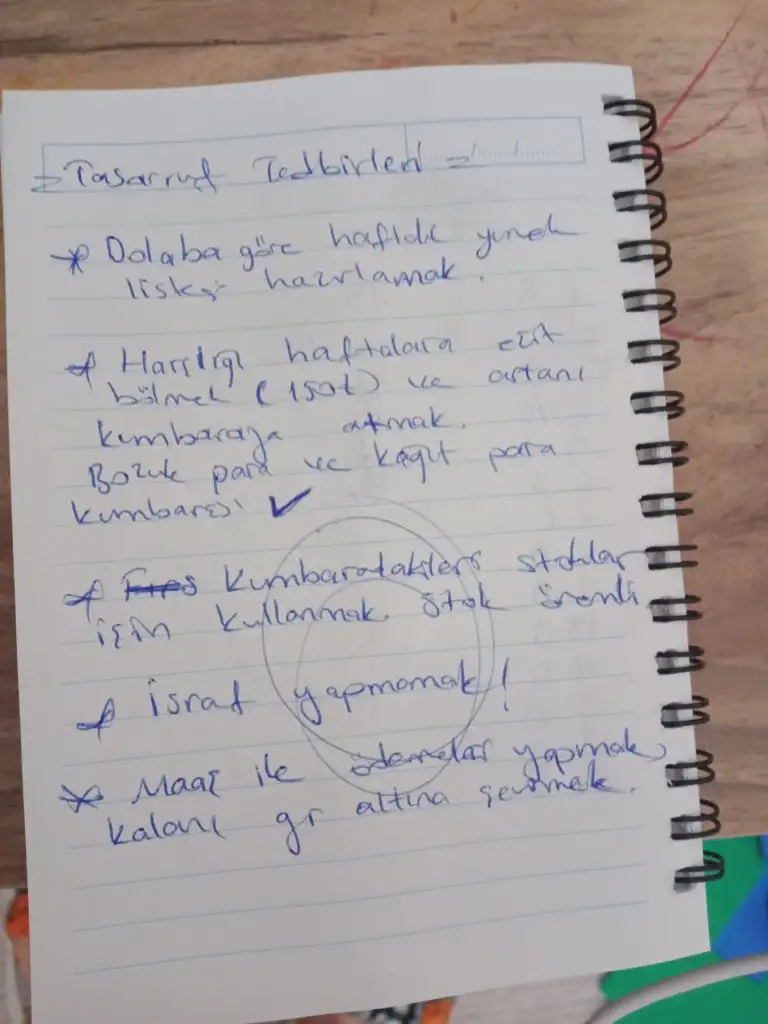 = Tasarruf Tedbirleri =
* Dolaba göre haftalık yemek
listesi hazırlamak.
* Harçlığı haftalara eşit
bölmek (150t) ve artanı
kumbaraya atmak.
Bozuk para ve kağıt para
kumbarası ✓
* Kumbaradakileri stoklar
için kullanmak. Stok önemli
* israf yapmamak!
* Maaş ile ödemeler yapmak,
kalanı gr altına çevirmek.